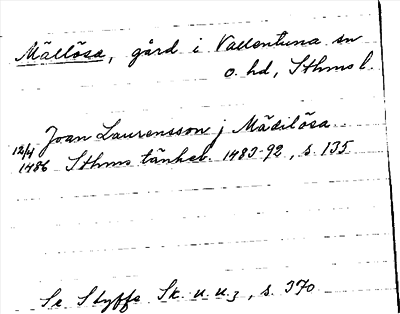 Mällösa, gård i Vallentuna sn
o. hd, Sthms l.
Joan Laurensson j Mädilösa
12/4 1486 Sthms tänkeb. 1483-92, s. 135
Se Styffe Sk. u. u. 3, s. 370